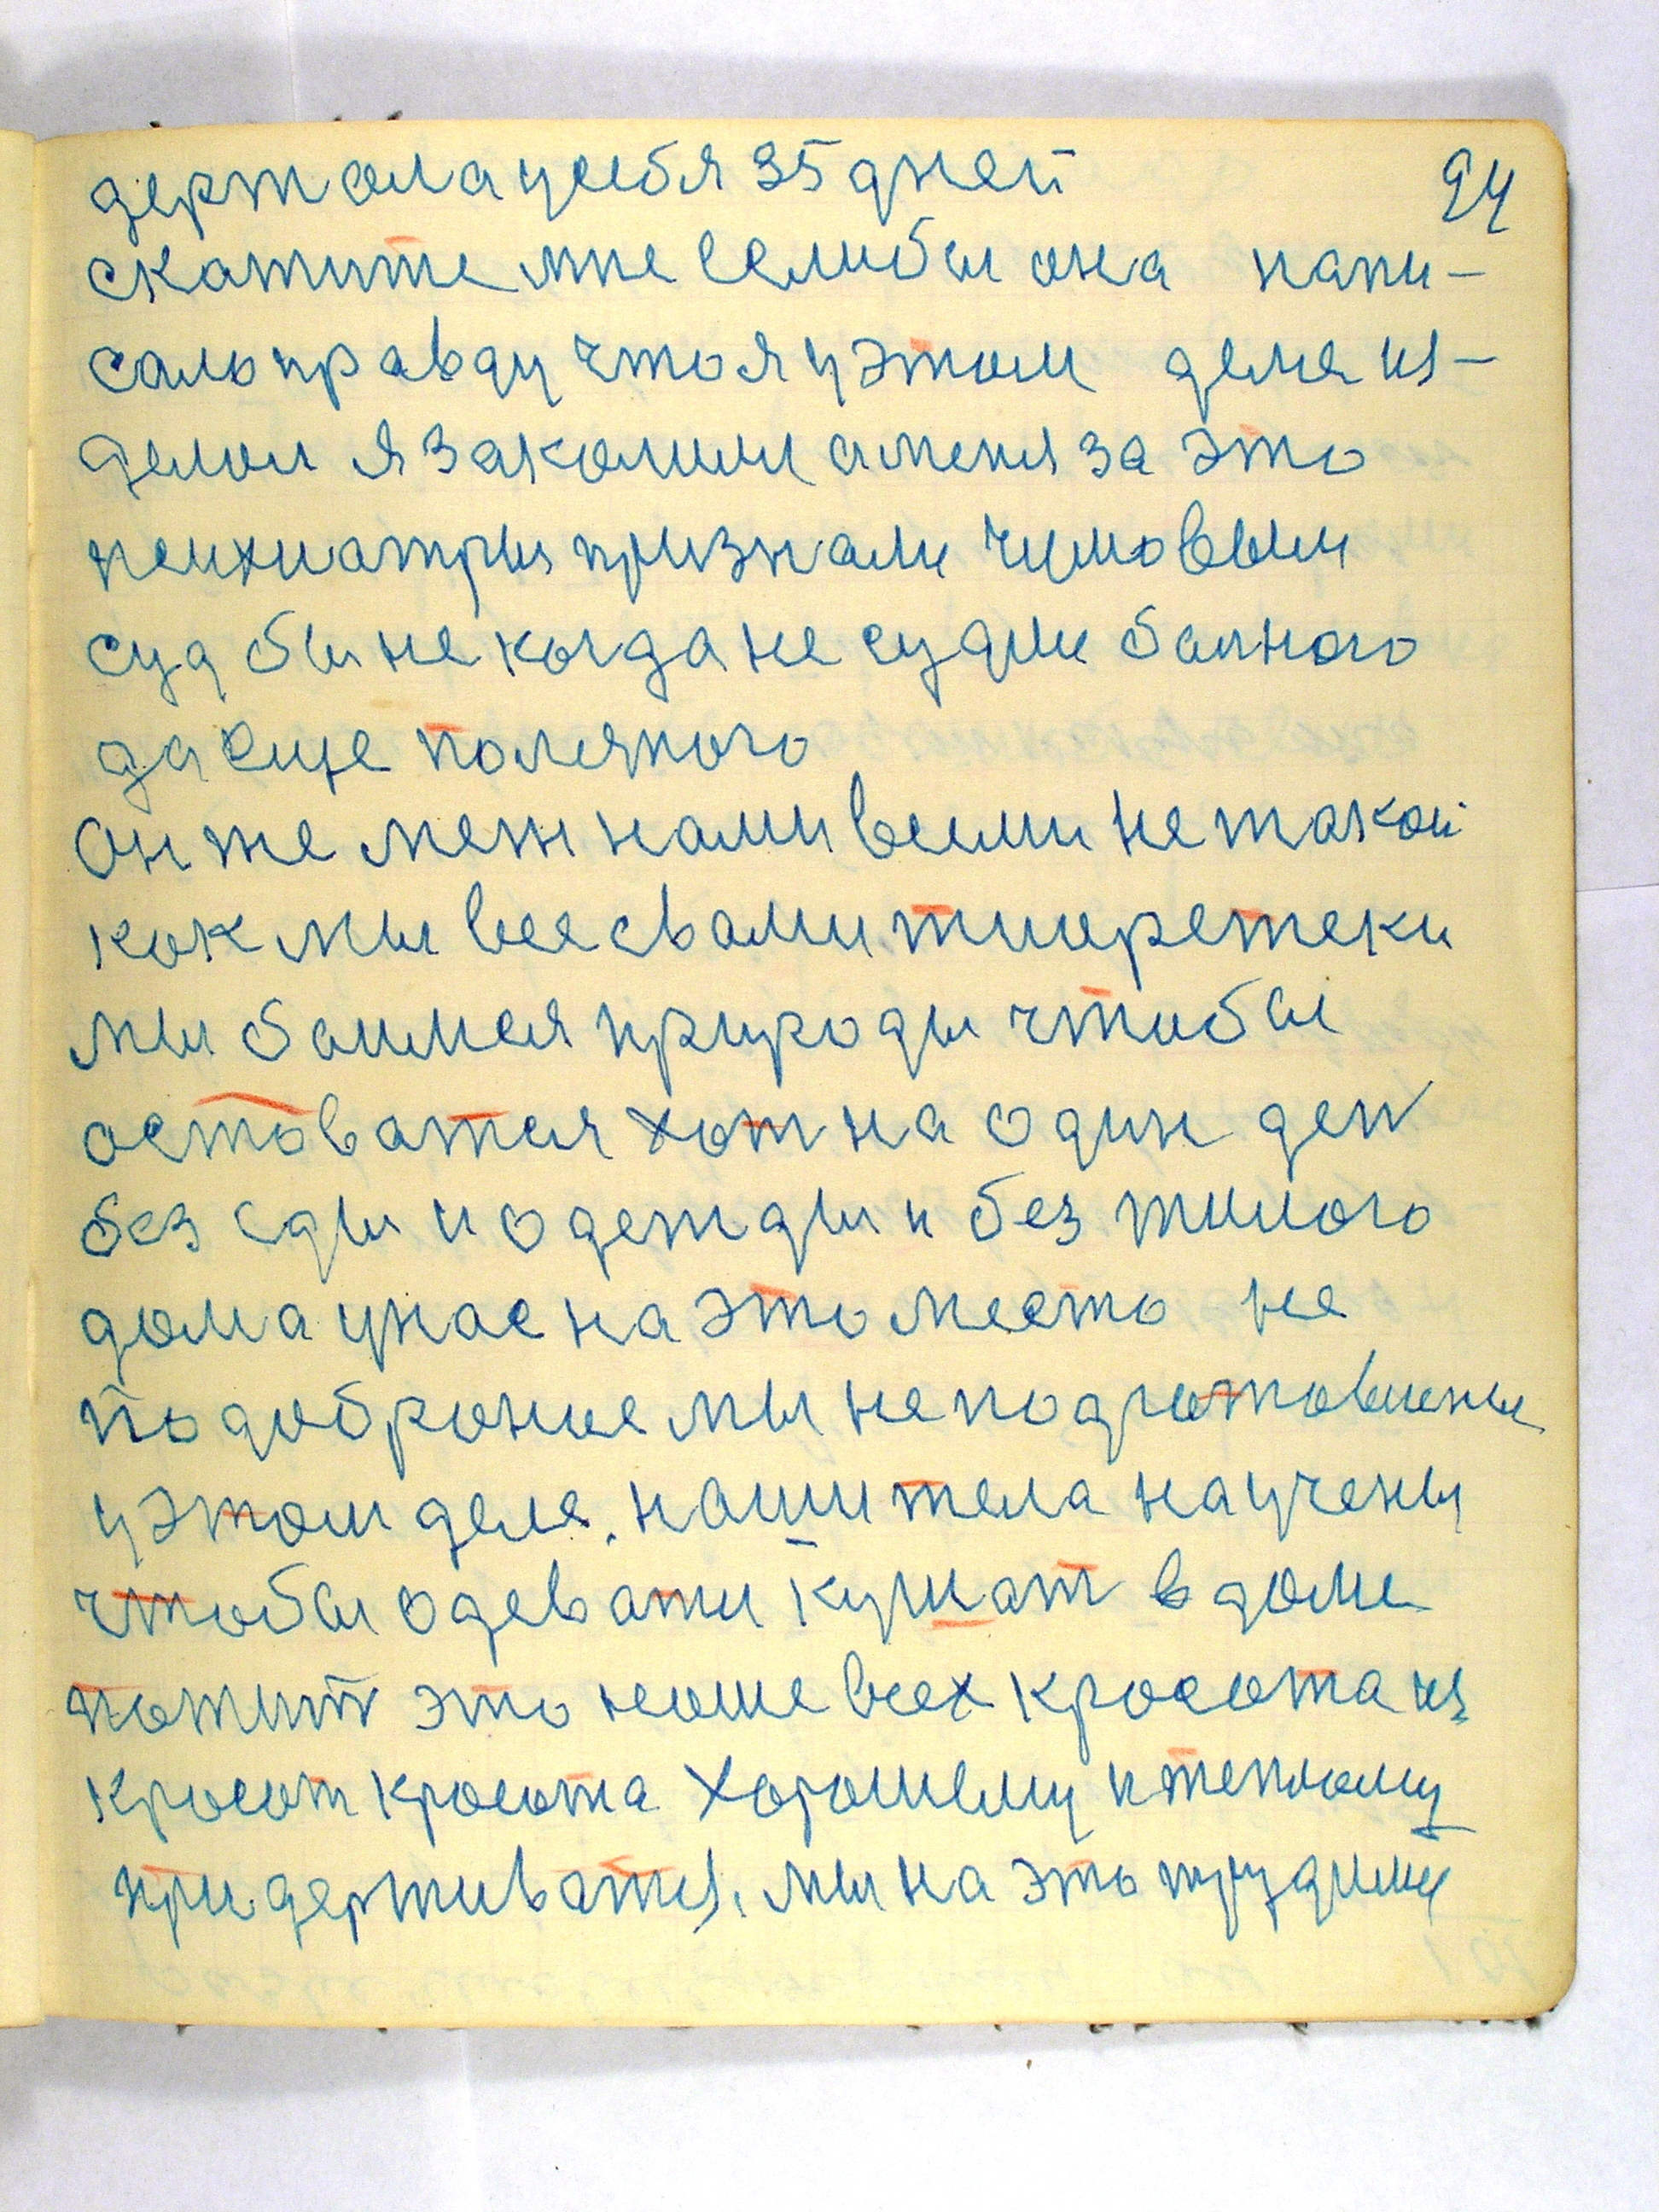 94
держала у себя 35 дней
скажите мне еслибы она напи-
сало правду что я у этом деле из-
делал я закалил а меня за это
психиатрия признали чумовым
суд бы не когда не судил больного
да еще
он же меж нами всеми не такой
как мы все с вами тиоретеки
мы боимся природы чтобы
оставатся хот на один ден
без еды и одежды и без жилого
дома у нас на это место не
подоброные мы не подготовлены
у этом деле. наши тела научены
чтобы одеват и кушат в доме
пожит это наше всех красота из
красот красота хорошему и теплому
придерживатся, мы на это трудимы